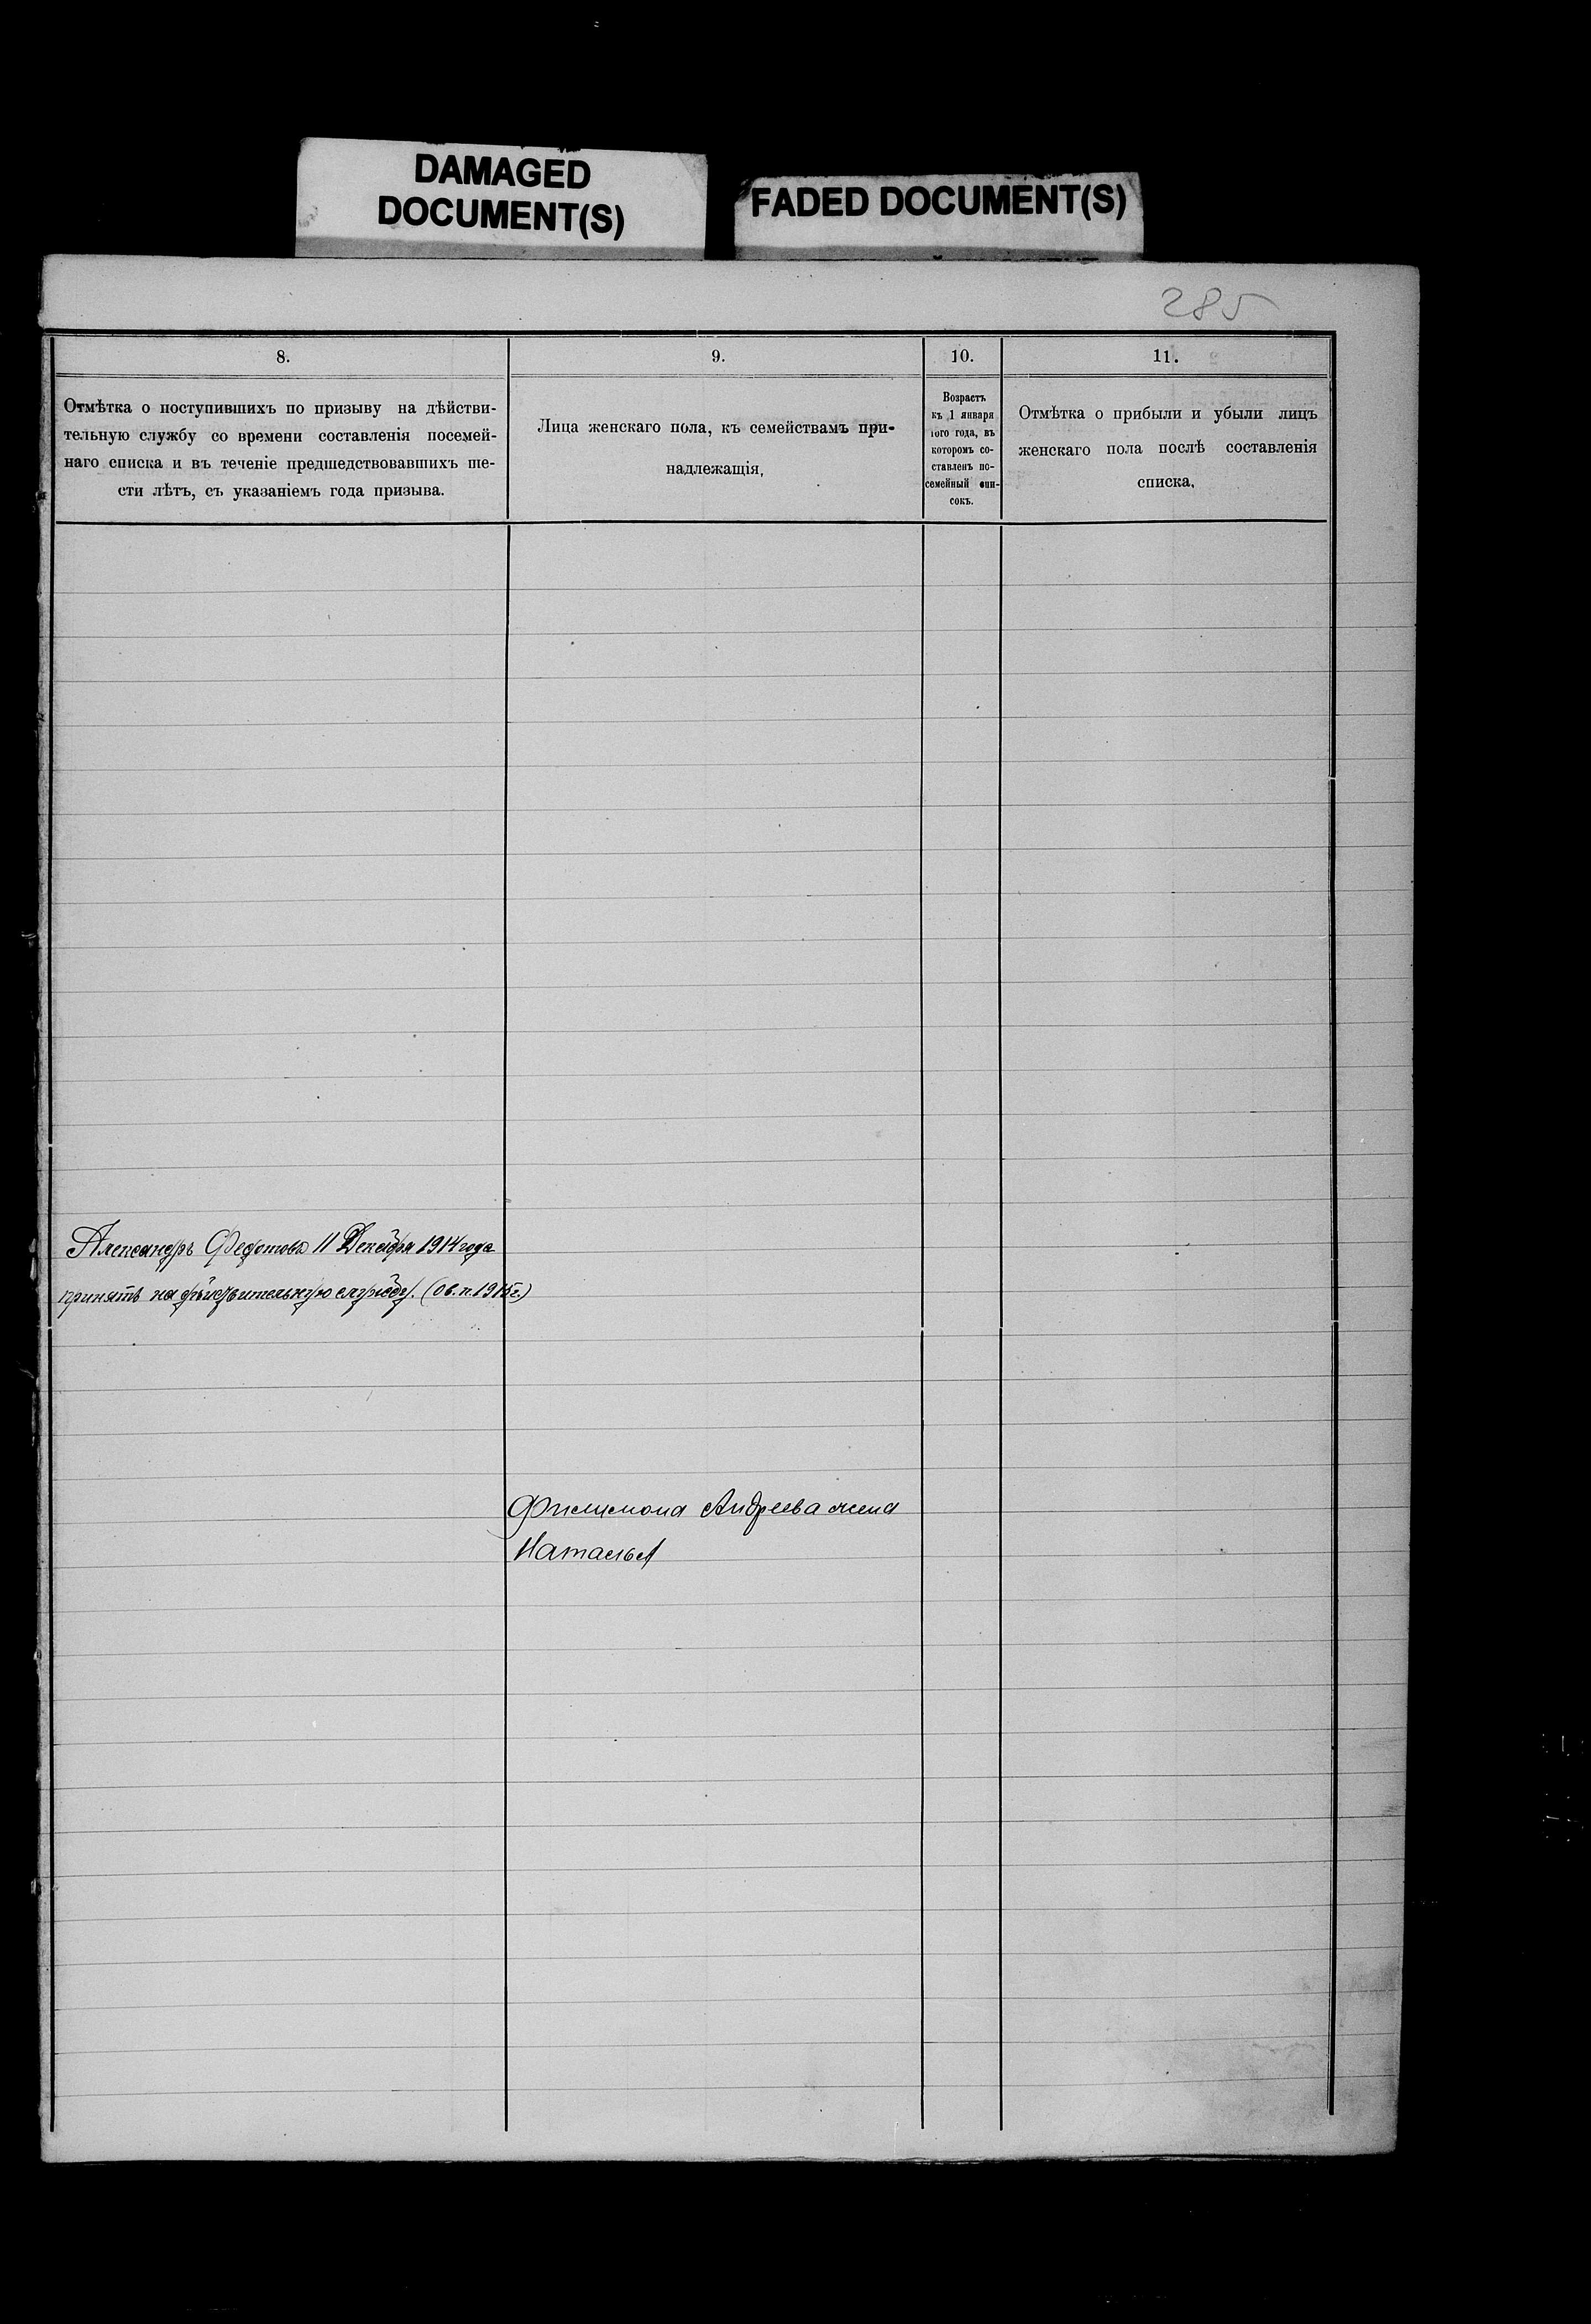 DAMAGED
DOCUMENT(S)
FADED DOCUMENT(S)
285
8.
Отмѣтка о поступившихъ по призыву на дѣйстви-
тельную службу со времени составленія посемей-
наго списка и въ теченіе предшедствовавшихъ ше-
сти лѣтъ, съ указаніемъ года призыва.
9.
Лица женскаго пола, къ семействамъ при-
надлежащія.
10.
Возрастъ
къ 1 января
того года, въ
которомъ со-
ставленъ по-
семейный спи-
сокъ.
11.
Отмѣтка о прибыли и убыли лицъ
женскаго пола послѣ составленія
списка.
Александръ Федотовъ 11 Декабря 1914 года
принятъ на дѣйствительную службу. (об. п. 1915 г.)
Филимона Андреева жена
Наталья